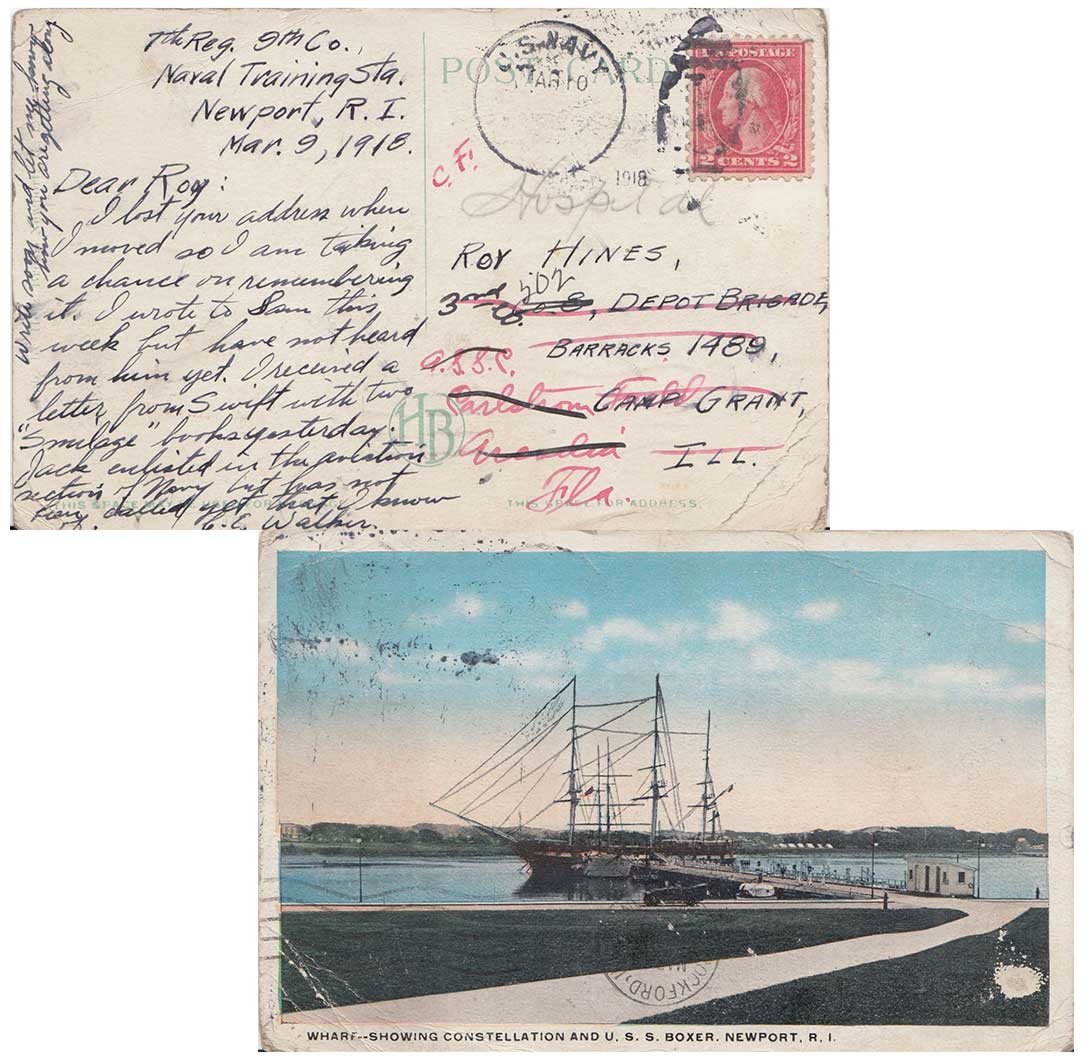 7th Reg. 9th Co.,
Naval Training Sta.
Newport, R. I.
Mar. 9, 1918.
Dear Roy:
I lost your address when
I moved so I am taking
a chance on remembering
it. I wrote to Sam this
week but have not heard
from him yet. I received a
letter from Swift with two
"Smilage" books yesterday.
Jack enlisted in the aviation
section of Navy but has not
been called yet that I know
of. C. C. Walker.
Write soon and let me know
how you are getting along
POST CARD
U.S. NAVY
MAR 10
1918
U.S. POSTAGE
2 CENTS 2
C. F.
Hospital
ROY HINES,
3rd Co. 8, DEPOT BRIGADE,
502
BARRACKS 1489,
A.S.S.C.
CAMP GRANT,
Carlstrom Field
ILL.
Arcadia
Fla.
HB
THIS SPACE FOR ADDRESS.
ROCKFORD,
WHARF--SHOWING CONSTELLATION AND U. S. S. BOXER. NEWPORT, R. I.